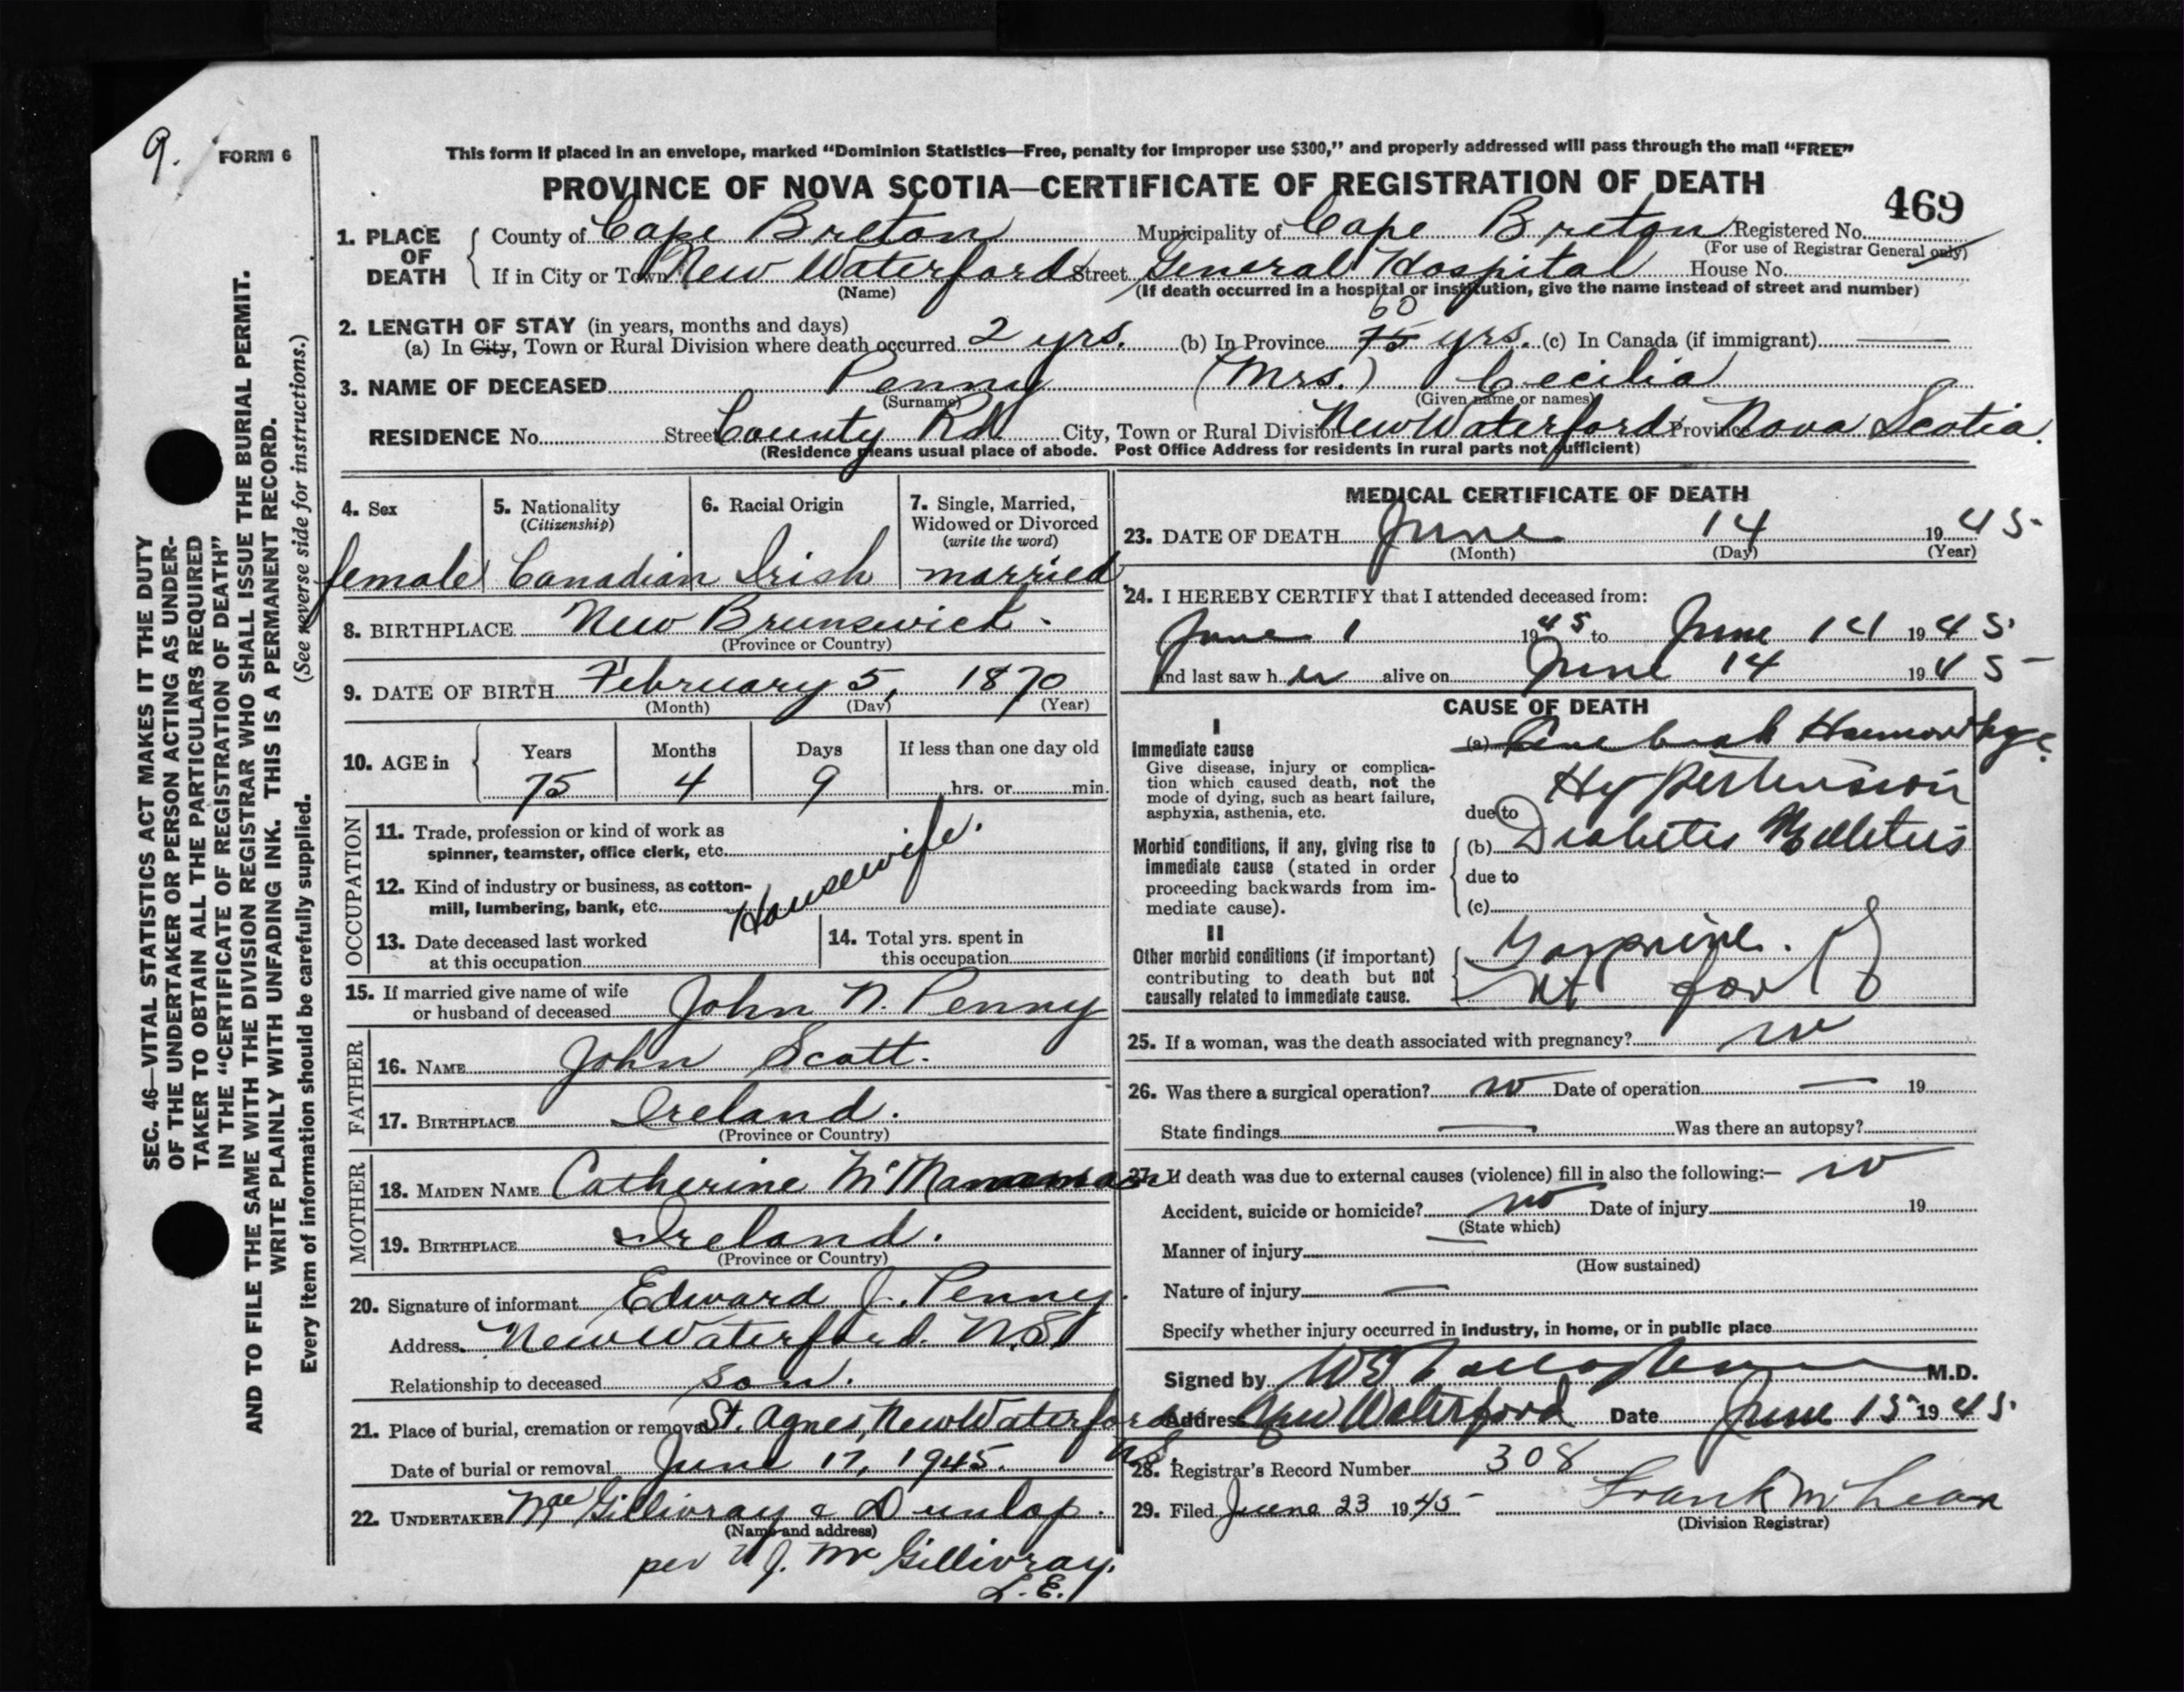 9.
FORM 6
This form if placed in an envelope, marked "Dominion Statistics—Free, penalty for improper use $300," and properly addressed will pass through the mail "FREE"
PROVINCE OF NOVA SCOTIA—CERTIFICATE OF REGISTRATION OF DEATH
469
1. PLACE OF DEATH
County of Cape Breton Municipality of Cape Breton Registered No.
(For use of Registrar General only)
If in City or Town New Waterford Street General Hospital House No.
(Name) (If death occurred in a hospital or institution, give the name instead of street and number)
2. LENGTH OF STAY (in years, months and days)
60
(a) In City, Town or Rural Division where death occurred 2 yrs. (b) In Province 75 yrs. (c) In Canada (if immigrant) —
3. NAME OF DECEASED Penny (Mrs.) Cecilia
(Surname) (Given name or names)
RESIDENCE No. Street County Rd. City, Town or Rural Division New Waterford Province Nova Scotia.
(Residence means usual place of abode. Post Office Address for residents in rural parts not sufficient)
4. Sex
female
5. Nationality
(Citizenship)
Canadian
6. Racial Origin
Irish
7. Single, Married,
Widowed or Divorced
(write the word)
married
8. BIRTHPLACE New Brunswick.
(Province or Country)
9. DATE OF BIRTH February 5, 1870
(Month) (Day) (Year)
10. AGE in
Years Months Days If less than one day old
75 4 9 hrs. or min.
OCCUPATION
11. Trade, profession or kind of work as
spinner, teamster, office clerk, etc.
12. Kind of industry or business, as cotton-
mill, lumbering, bank, etc.
Housewife.
13. Date deceased last worked
at this occupation
14. Total yrs. spent in
this occupation
15. If married give name of wife
or husband of deceased John N. Penny
FATHER
16. NAME John Scott.
17. BIRTHPLACE Ireland.
(Province or Country)
MOTHER
18. MAIDEN NAME Catherine
19. BIRTHPLACE Ireland.
(Province or Country)
20. Signature of informant Edward J. Penny.
Address New Waterford. N.S.
Relationship to deceased son.
21. Place of burial, cremation or removal St. Agnes, New Waterford
N.S.
Date of burial or removal June 17, 1945.
22. UNDERTAKER MacGillivray & Dunlop.
(Name and address)
per J. McGillivray.
L.E.
MEDICAL CERTIFICATE OF DEATH
23. DATE OF DEATH June 14 1945
(Month) (Day) (Year)
24. I HEREBY CERTIFY that I attended deceased from:
June 1 1945 to June 14 1945
and last saw her alive on June 14 1945
CAUSE OF DEATH
I
Immediate cause
Give disease, injury or complica-
tion which caused death, not the
mode of dying, such as heart failure,
asphyxia, asthenia, etc.
(a) Cerebral Haemorrhage
due to Hypertension
Morbid conditions, if any, giving rise to
immediate cause (stated in order
proceeding backwards from im-
mediate cause).
(b) Diabetes Mellitus
due to
(c)
II
Other morbid conditions (if important)
contributing to death but not
causally related to immediate cause.
foot
25. If a woman, was the death associated with pregnancy? no
26. Was there a surgical operation? no Date of operation — 19
State findings — Was there an autopsy?
27. If death was due to external causes (violence) fill in also the following:— no
Accident, suicide or homicide? no Date of injury 19
(State which)
Manner of injury —
(How sustained)
Nature of injury —
Specify whether injury occurred in industry, in home, or in public place
Signed by M.D.
Address New Waterford Date June 15 1945
28. Registrar's Record Number 308
29. Filed June 23 1945 Frank McLean
(Division Registrar)
SEC. 46—VITAL STATISTICS ACT MAKES IT THE DUTY
OF THE UNDERTAKER OR PERSON ACTING AS UNDER-
TAKER TO OBTAIN ALL THE PARTICULARS REQUIRED
IN THE "CERTIFICATE OF REGISTRATION OF DEATH"
AND TO FILE THE SAME WITH THE DIVISION REGISTRAR WHO SHALL ISSUE THE BURIAL PERMIT.
WRITE PLAINLY WITH UNFADING INK. THIS IS A PERMANENT RECORD.
Every item of information should be carefully supplied. (See reverse side for instructions.)